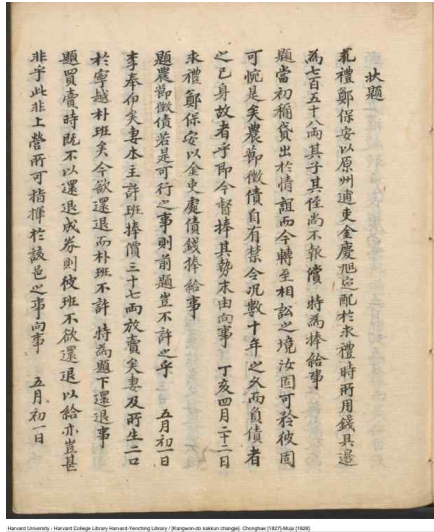 狀題
求禮鄭保安以原州逋吏金慶旭定配於求禮時所用錢具邊
為七百五十八兩其子其侄尚不報償特為捧給事
題當初稱貸出於情誼而今轉至相訟之境汝固可矜彼固
可惋是矣農節徵債自有禁令況數十年之久而負債者
之已身故者乎即今督捧其勢末由向事 丁亥四月二十二日
求禮鄭保安以金吏處債錢捧給事
題農節徵債若是可行之事則前題豈不許之乎 五月初一日
李奉仰矣妻本主許班捧價三十七兩放賣矣妻及所生二口
於寧越朴班矣今欲還退而朴班不許特為題下還退事
題買賣時既不以還退成券則彼班不欲還退以給亦豈甚
非乎此非上營所可指揮於該邑之事向事 五月初一日
Harvard University - Harvard College Library Harvard-Yenching Library / [Kangwon-do kakkun changje]. Chonghae [1827]-Muja [1828]